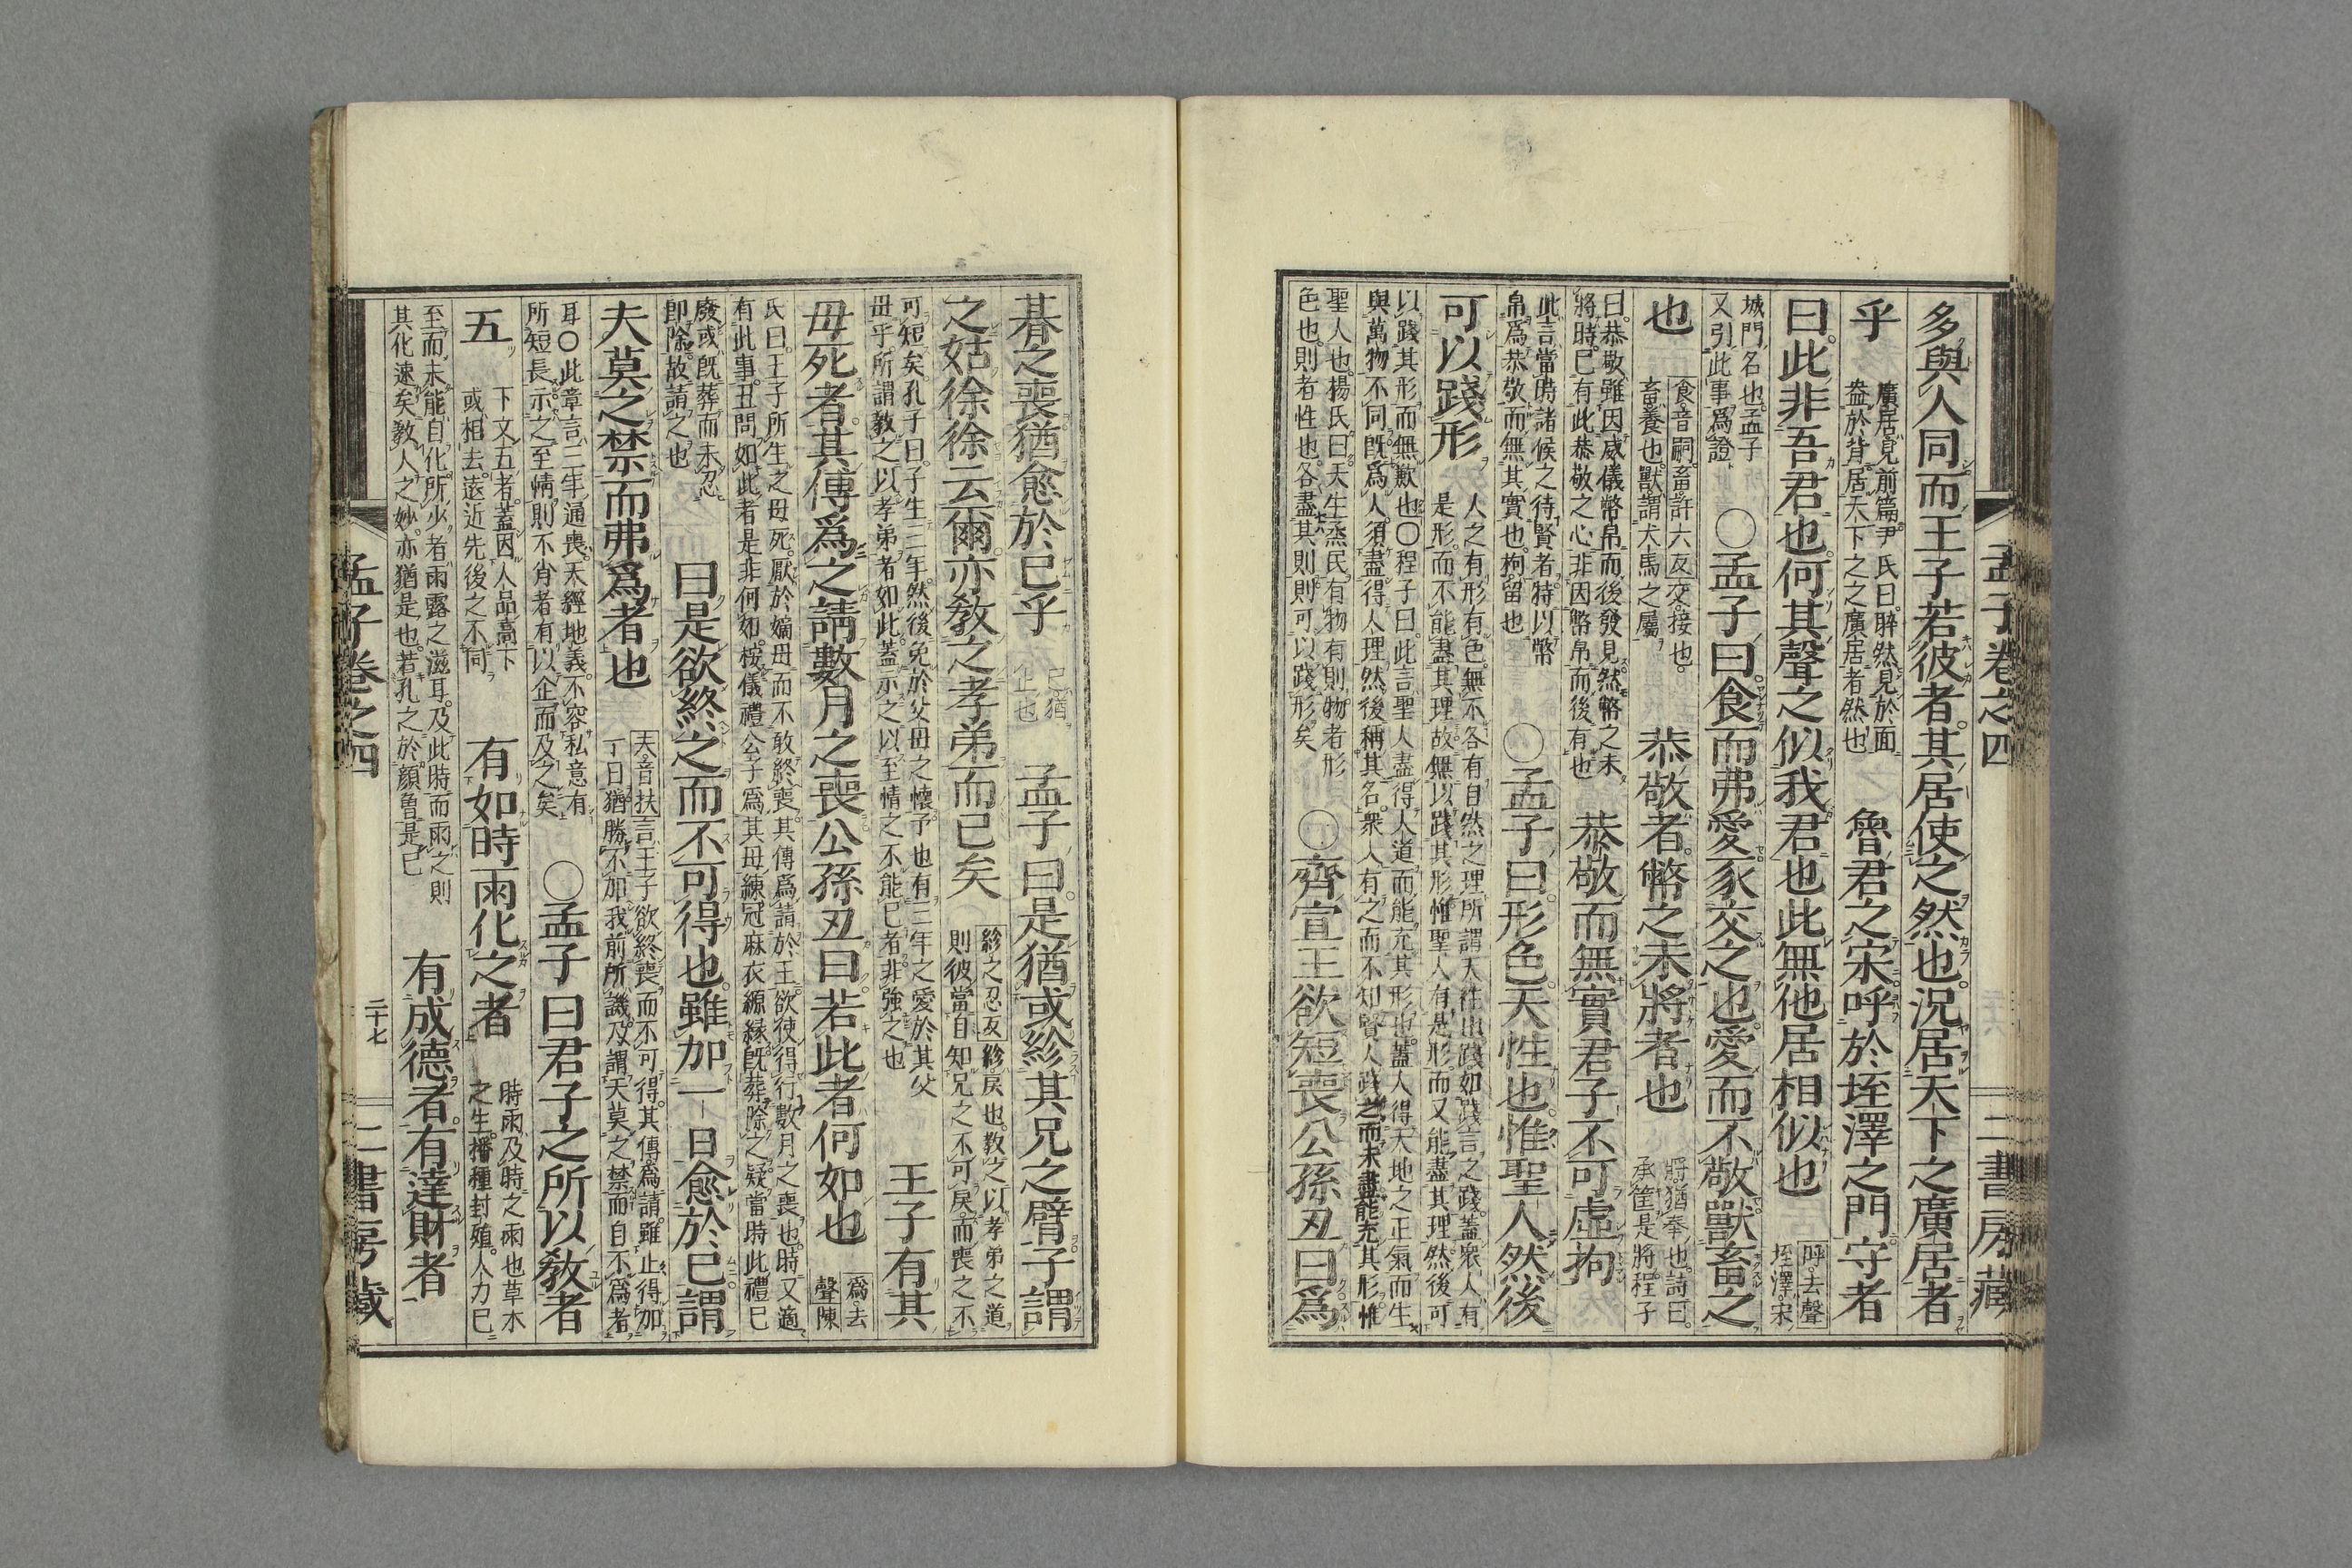 孟子卷之四 二書房藏
多與人同而王子若彼者其居使之然也況居天下之廣居者
乎 廣居見前篇尹氏曰睟然見於面盎於背居天下之廣居者然也 魯君之宋呼於垤澤之門守者
曰此非吾君也何其聲之似我君也此無他居相似也 呼去聲垤澤宋
城門名也孟子又引此事爲證 ○孟子曰食而弗愛豕交之也愛而不敬獸畜之
也 食音嗣畜許六反交接也畜養也獸謂犬馬之屬 恭敬者幣之未將者也 將猶奉也詩曰承筐是將程子
曰恭敬雖因威儀幣帛而後發見然幣之未將時已有此恭敬之心非因幣帛而後有也 恭敬而無實君子不可虛拘
此言當時諸侯之待賢者特以幣帛爲恭敬而無其實也拘留也 ○孟子曰形色天性也惟聖人然後
可以踐形 人之有形有色無不各有自然之理所謂天性也踐如踐言之踐蓋衆人有是形而不能盡其理故無以踐其形惟聖人有是形而又能盡其理然後可
以踐其形而無歉也○程子曰此言聖人盡得人道而能充其形也蓋人得天地之正氣而生與萬物不同既爲人須盡得人理然後稱其名衆人有之而不知賢人踐之而未盡能充其形惟
聖人也楊氏曰天生烝民有物有則物者形色也則者性也各盡其則則可以踐形矣 ○齊宣王欲短喪公孫丑曰爲
朞之喪猶愈於已乎 已猶止也 孟子曰是猶或紾其兄之臂子謂
之姑徐徐云爾亦敎之孝弟而已矣 紾之忍反紾戾也敎之以孝弟之道則彼當自知兄之不可戾而喪之不
可短矣孔子曰子生三年然後免於父母之懷予也有三年之愛於其父母乎所謂敎之以孝弟者如此蓋示之以至情之不能已者非強之也 王子有其
母死者其傅爲之請數月之喪公孫丑曰若此者何如也 爲去聲陳
氏曰王子所生之母死厭於嫡母而不敢終喪其傅爲請於王欲使得行數月之喪也時又適有此事丑問如此者是非何如按儀禮公子爲其母練冠麻衣縓緣既葬除之疑當時此禮已
廢或既葬而未忍即除故請之也 曰是欲終之而不可得也雖加一日愈於已謂
夫莫之禁而弗爲者也 夫音扶言王子欲終喪而不可得其傅爲請雖止得加一日猶勝不加我前所譏乃謂夫莫之禁而自不爲者
耳○此章言三年通喪天經地義不容私意有所短長示之至情則不肖者有以企而及之矣 ○孟子曰君子之所以敎者
五 下文五者蓋因人品高下或相去遠近先後之不同 有如時雨化之者 時雨及時之雨也草木之生播種封殖人力已
至而未能自化所少者雨露之滋耳及此時而雨之則其化速矣敎人之妙亦猶是也若孔之於顏曾是已 有成德者有達財者
孟子卷之四 二十七 二書房藏